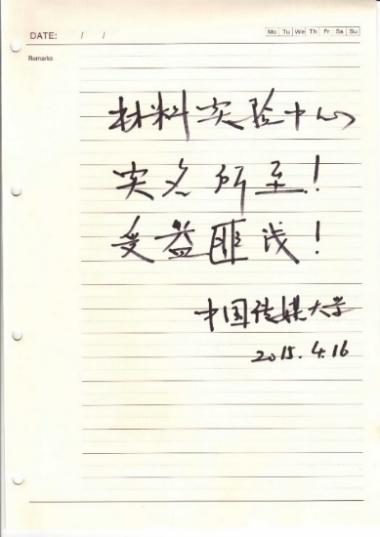 DATE: / /
Mo Tu We Th Fr Sa Su
Remarks
材料实验中心
实名所至!
受益匪浅!
中国传媒大学
2015.4.16